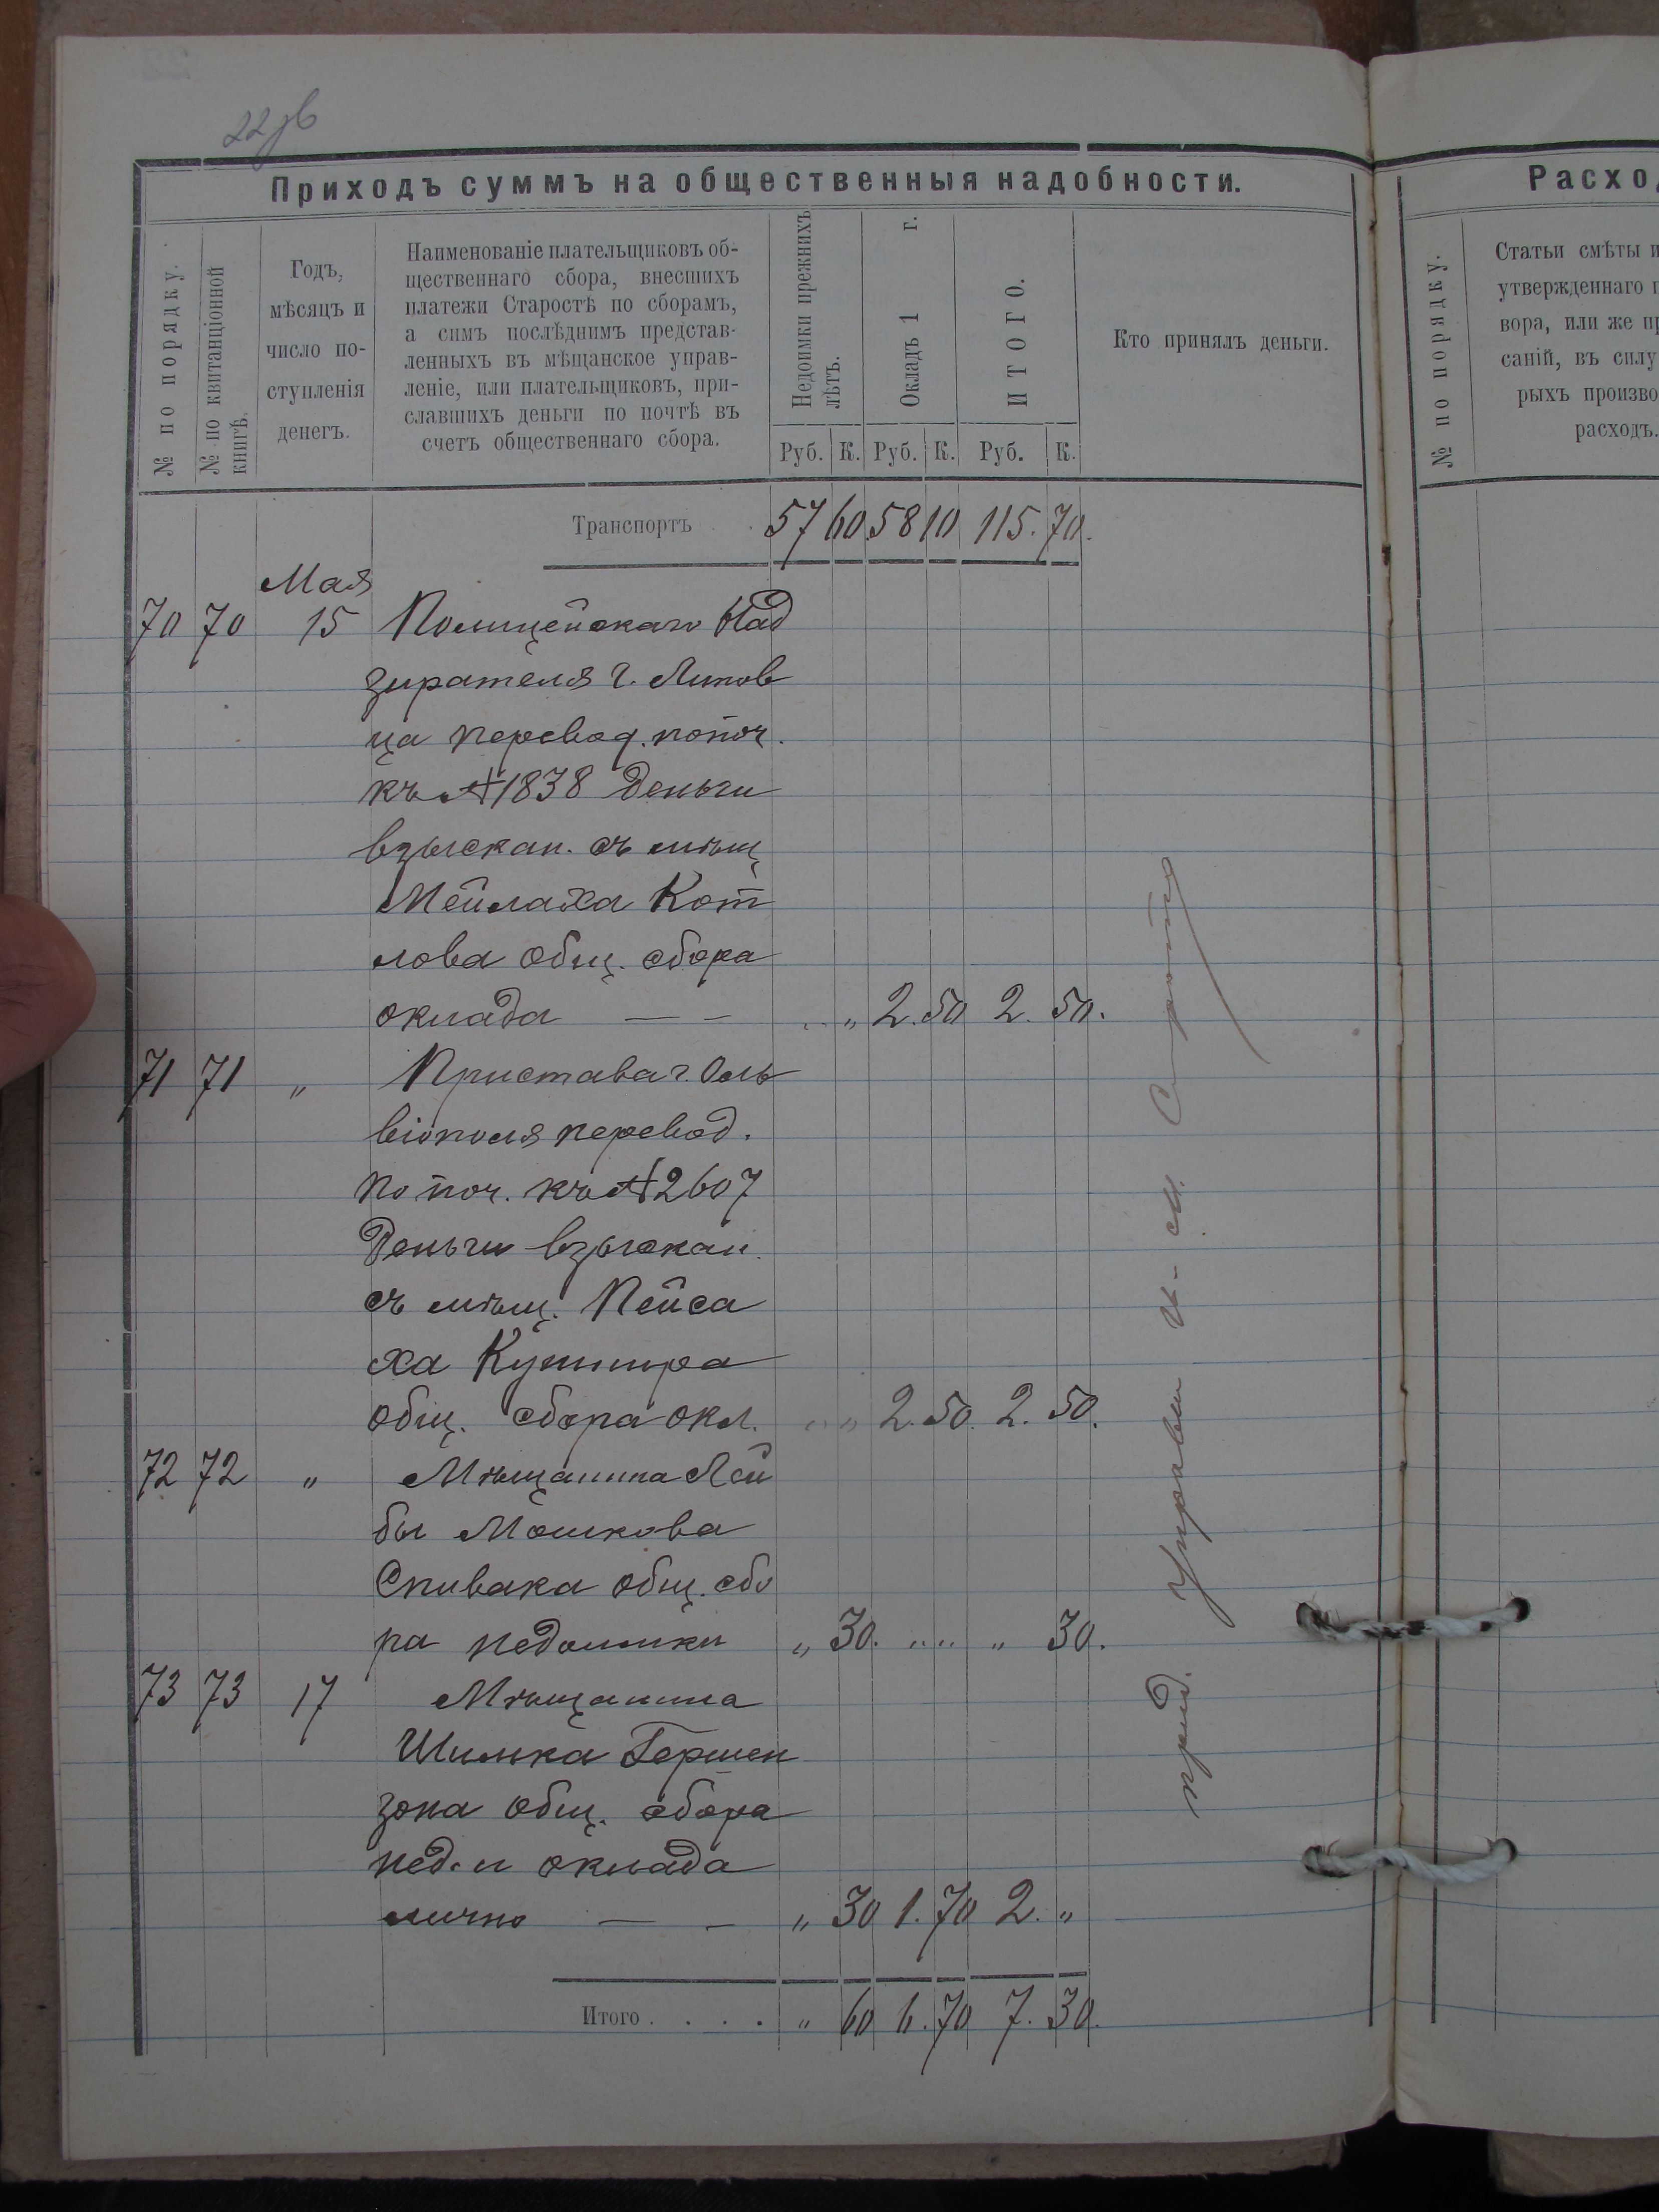 22 об
Приходъ суммъ на общественныя надобности.
№ по порядку.
№ по квитанціонной
книгѣ.
Годъ,
мѣсяцъ и
число по-
ступленія
денегъ.
Наименованіе плательщиковъ об-
щественнаго сбора, внесшихъ
платежи Старостѣ по сборамъ,
а симъ послѣднимъ представ-
ленныхъ въ мѣщанское управ-
леніе, или плательщиковъ, при-
славшихъ деньги по почтѣ въ
счетъ общественнаго сбора.
Недоимки прежнихъ
лѣтъ.
Окладъ 1 г.
ИТОГО.
Кто принялъ деньги.
Руб. К. Руб. К. Руб. К.
Транспортъ 57 60 58 10 115. 70.
Мая
70 70 15 Полицейскаго Над
зирателя г. Липов
ца перевод. по поч.
къ № 1838 деньги
взыскан. съ мѣщ
Мейлаха Кот
лова общ. сбора
оклада — — „ 2. 50 2. 50.
71 71 „ Пристава г. Оль
віополя перевод.
по поч. къ № 2607
деньги взыскан.
съ мѣщ. Пейса
ха Кушнира
общ. сбора окл. „ 2. 50. 2. 50.
72 72 „ Мѣщанина Лей
бы Мошкова
Спивака общ. сбо
ра недоимки „ 30. „ „ „ 30.
73 73 17 Мѣщанина
Шимка Гершен
зона общ. сбора
нед. и оклада
лично — — „ 30 1. 70 2. „
Итого . . . . „ 60 6. 70 7. 30.
Управы
Расхо
№ по порядку.
Статьи смѣты и
утвержденнаго п
вора, или же пр
саній, въ силу
рыхъ произво
расходъ.